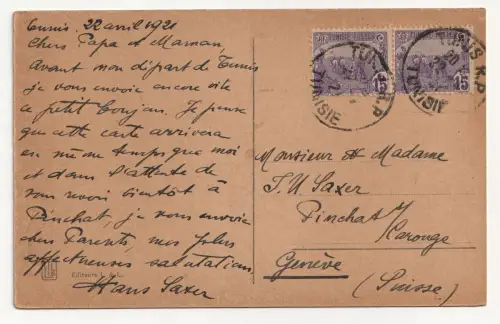 Tunis. 22 avril 1921
Chers Papa et Maman,
Avant mon départ de Tunis
je vous envoie encore vite
ce petit bonjour. Je pense
que cette carte arrivera
en même temps que moi
et dans l'attente de
vous revoir bientôt à
Pinchat, je vous envoie
chers Parents, mes plus
affectueuses salutations
Hans Saxer
Editeurs L. & L.
15
15
TUNIS R.P.
TUNISIE
TUNIS R.P.
TUNISIE
Monsieur et Madame
J. U. Saxer
Pinchat s/
Carouge
Genève
(Suisse)